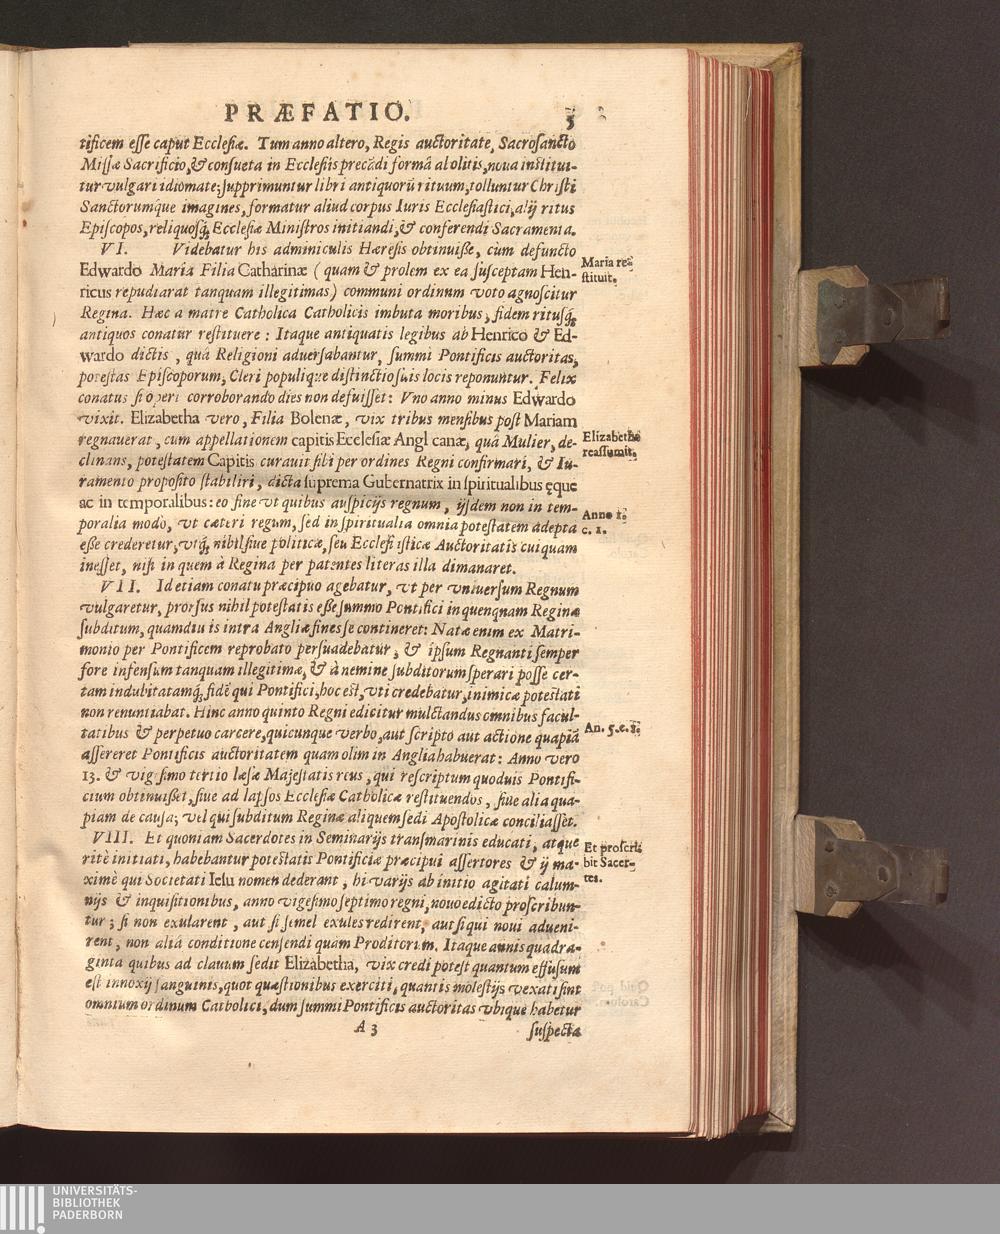 PRÆFATIO. 5
tificem esse caput Ecclesiæ. Tum anno altero, Regis auctoritate, Sacrosancto
Missæ Sacrificio, & consueta in Ecclesiis precādi formâ abolitis, noua instituitur
tur vulgari idiomate; supprimuntur libri antiquorū rituum, tolluntur Christi
Sanctorumque imagines, formatur aliud corpus Iuris Ecclesiastici, alij ritus
Episcopos, reliquosq́; Ecclesiæ Ministros initiandi, & conferendi Sacramenta.
VI. Videbatur his adminiculis Hæresis obtinuisse, cùm defuncto
Edwardo Maria Filia Catharinæ (quam & prolem ex ea susceptam Hen-
Maria re-
stituit.
ricus repudiarat tanquam illegitimas) communi ordinum voto agnoscitur
Regina. Hæc a matre Catholica Catholicis imbuta moribus, fidem ritusq́;
antiquos conatur restituere: Itaque antiquatis legibus ab Henrico & Ed-
wardo dictis, quâ Religioni aduersabantur, summi Pontificis auctoritas,
potestas Episcoporum, Cleri populique distinctio suis locis reponuntur. Felix
conatus si operi corroborando dies non defuisset: Vno anno minus Edwardo
vixit. Elizabetha vero, Filia Bolenæ, vix tribus mensibus post Mariam
regnauerat, cum appellationem capitis Ecclesiæ Anglicanæ, quâ Mulier, de-
Elizabetha
reassumit.
clinans, potestatem Capitis curauit sibi per ordines Regni confirmari, & Iu-
ramento proposito stabiliri, dicta suprema Gubernatrix in spiritualibus ęque
ac in temporalibus: eo fine vt quibus auspicijs regnum, ijsdem non in tem-
Anno 1.
c. 1.
poralia modò, vt cæteri regum, sed in spiritualia omnia potestatem adepta
esse crederetur, vtq́; nihil siue politicæ, seu Ecclesiasticæ Auctoritatis cuiquam
inesset, nisi in quem à Regina per patentes literas illa dimanaret.
VII. Id etiam conatu præcipuo agebatur, vt per vniuersum Regnum
vulgaretur, prorsus nihil potestatis esse summo Pontifici in quenquam Reginæ
subditum, quamdiu is intra Angliæ fines se contineret: Natæ enim ex Matri-
monio per Pontificem reprobato persuadebatur, & ipsum Regnanti semper
fore infensum tanquam illegitimæ, & à nemine subditorum sperari posse cer-
tam indubitatamq́; fidē qui Pontifici, hoc est, vti credebatur, inimicæ potestati
non renuntiabat. Hinc anno quinto Regni edicitur mulctandus omnibus facul-
An. 5. c. 1.
tatibus & perpetuo carcere, quicunque verbo, aut scripto aut actione quapiā
assereret Pontificis auctoritatem quam olim in Anglia habuerat: Anno vero
13. & vigesimo tertio læsæ Majestatis reus, qui rescriptum quoduis Pontifi-
cium obtinuisset, siue ad lapsos Ecclesiæ Catholicæ restituendos, siue alia qua-
piam de causa; vel qui subditum Reginæ aliquem sedi Apostolicæ conciliasset.
VIII. Et quoniam Sacerdotes in Seminarijs transmarinis educati, atque
Et proscri-
bit Sacer-
tes.
ritè initiati, habebantur potestatis Pontificiæ præcipui assertores & ij ma-
ximè qui Societati Iesu nomen dederant, hi varijs ab initio agitati calum-
nijs & inquisitionibus, anno vigesimo septimo regni, nouo edicto proscribun-
tur; si non exularent, aut si semel exules redirent, aut si qui noui adueni-
rent, non aliâ conditione censendi quàm Proditorum. Itaque annis quadra-
ginta quibus ad clauum sedit Elizabetha, vix credi potest quantum effusum
est innoxij sanguinis, quot quæstionibus exerciti, quantis molestijs vexati sint
omnium ordinum Catholici, dum summi Pontificis auctoritas vbique habetur
A 3 suspecta
UNIVERSITÄTS-
BIBLIOTHEK
PADERBORN